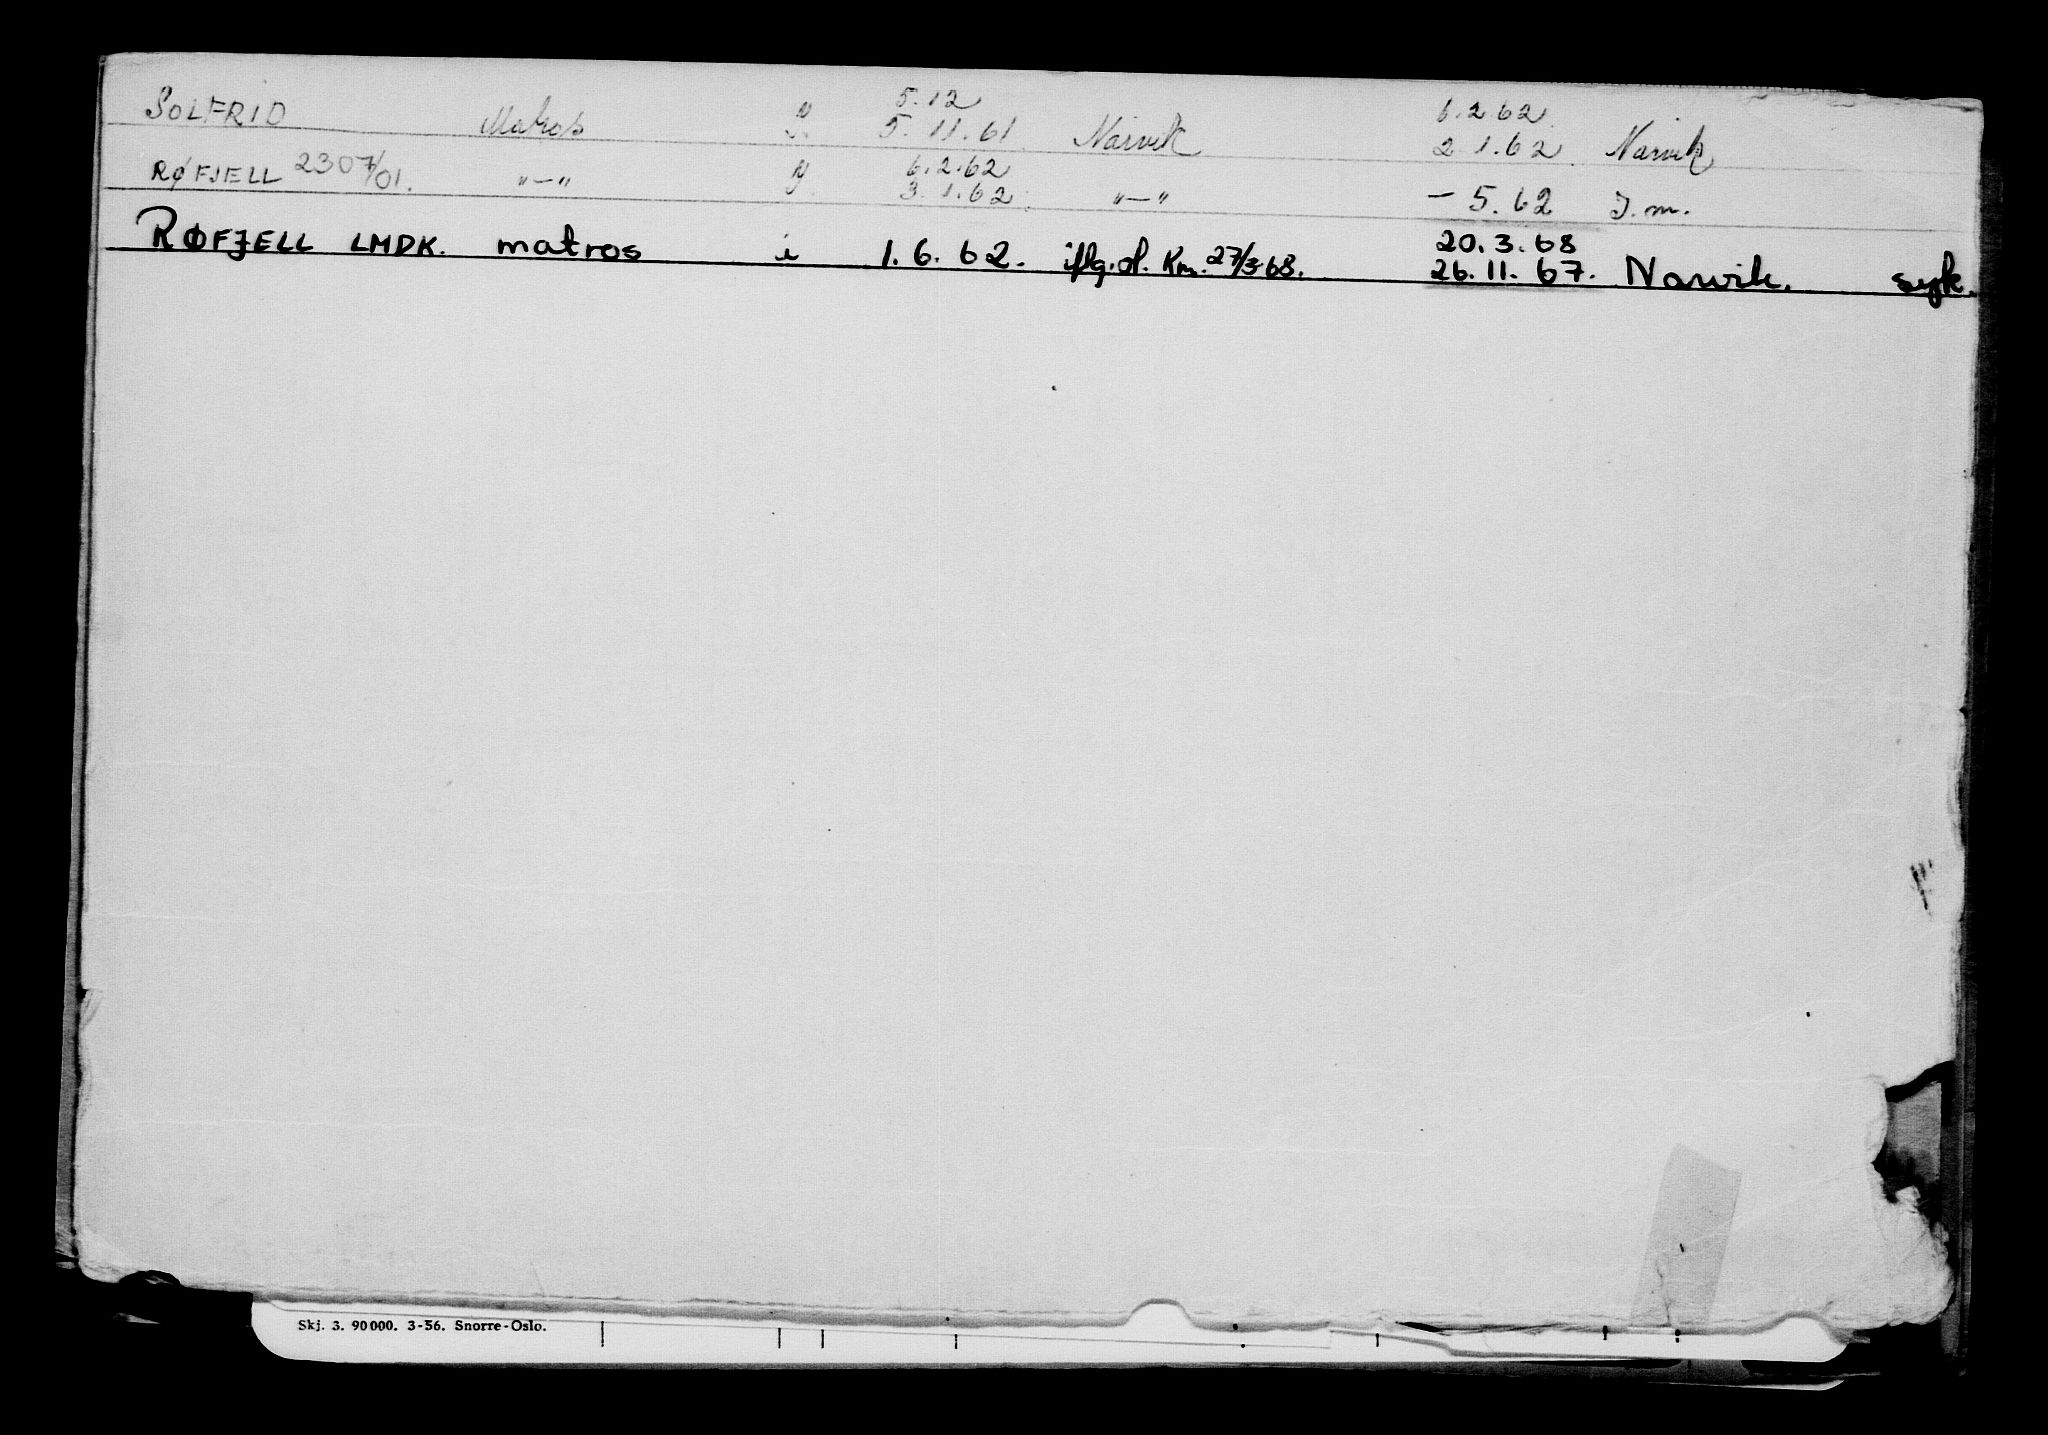 5.12 6.2.62.
SOLFRID Matros 5.11.61. Narvik 2.1.62. Narvik
6.2.62
RØFJELL 2307/01. "—" 3.1.62. "—" — 5.62 I.m.
20.3.68
RØFJELL LMDK. matros i 1.6.62. iflg. of. Km. 27/3 68. 26.11.67. Narvik. syk.
Skj. 3. 90 000. 3-56. Snorre-Oslo.